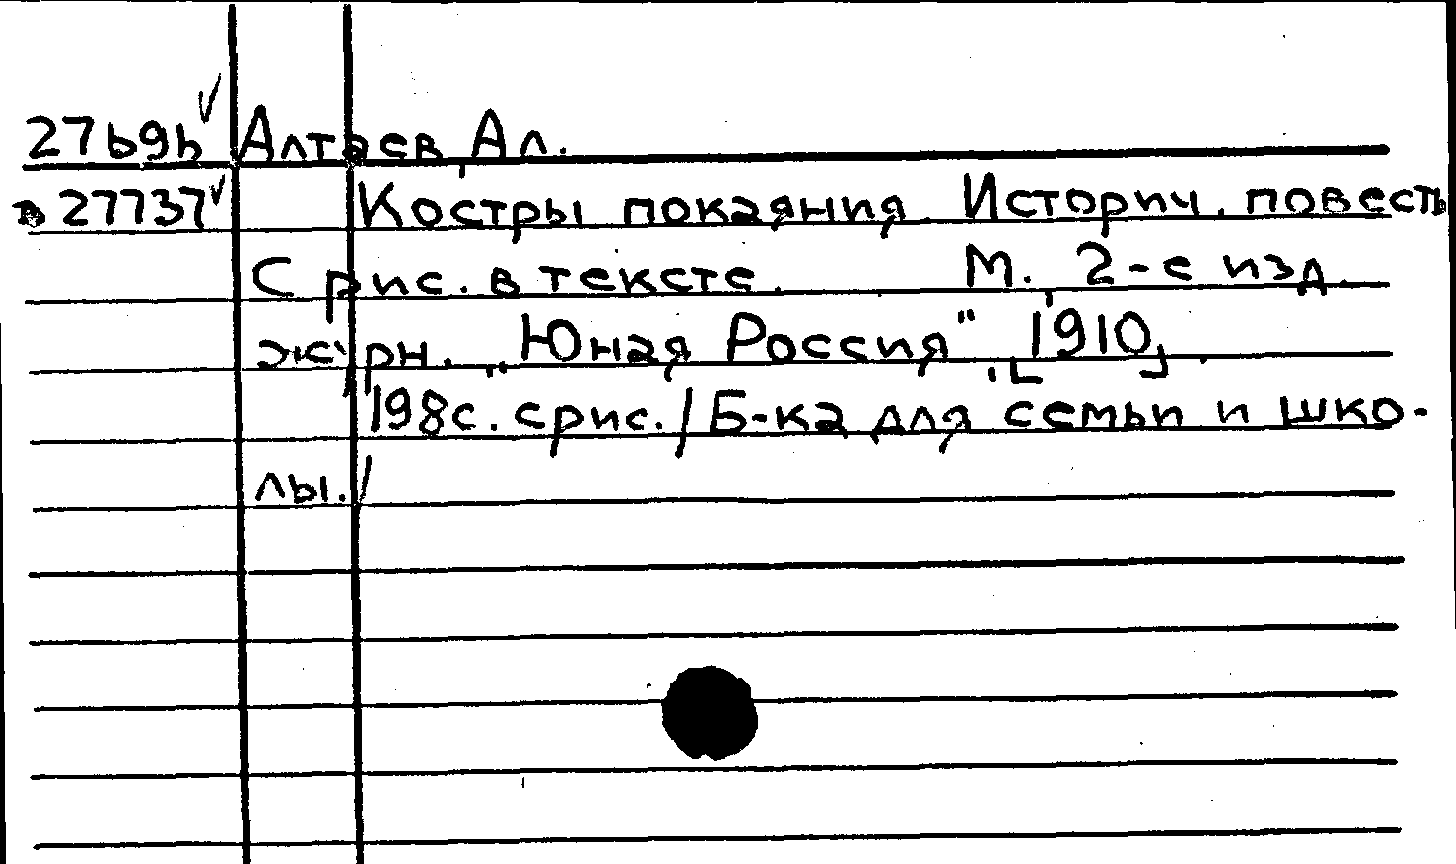 27696 ✓ Алтаев, Ал.
в 27737 ✓ Костры покаяния. Историч. повесть
С рис. в тексте. М., 2-е изд.
журн. „Юная Россия", [1910].
198с. с рис. / Б-ка для семьи и шко-
лы. /